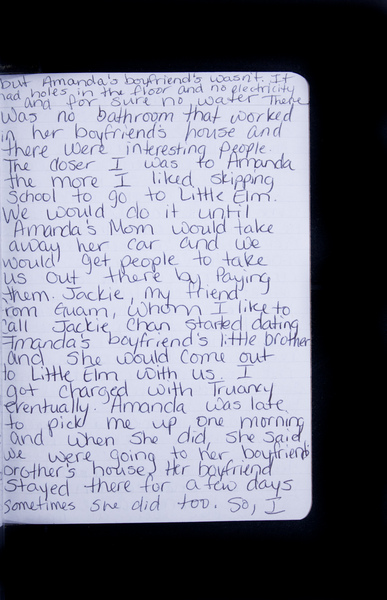 but Amanda's boyfriend's wasn't. It
had holes in the floor and no electricity
and for sure no water. There
was no bathroom that worked
in her boyfriend's house and
there were interesting people.
The closer I was to Amanda
the more I liked skipping
school to go to Little Elm.
We would do it until
Amanda's Mom would take
away her car and we
would get people to take
us out there by Paying
them. Jackie, my friend
rom Guam, whom I like to
call Jackie Chan started dating
Amanda's boyfriend's little brother
and she would come out
to Little Elm with us. I
got charged with Truancy
eventually. Amanda was late
to pick me up one morning
and when she did, she said
we were going to her boyfriend
brother's house. Her boyfriend
stayed there for a few days
sometimes she did too. So, I